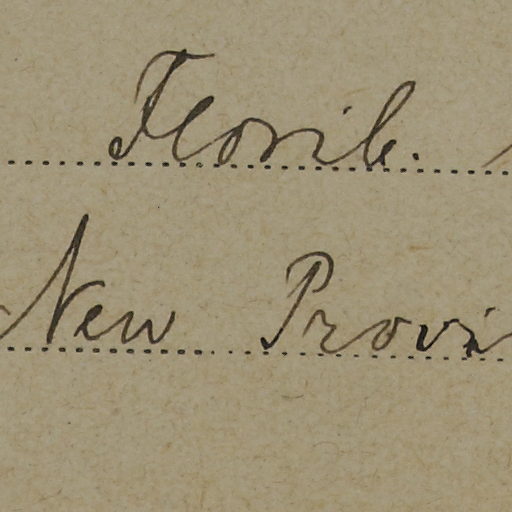 Florib.
New Provi